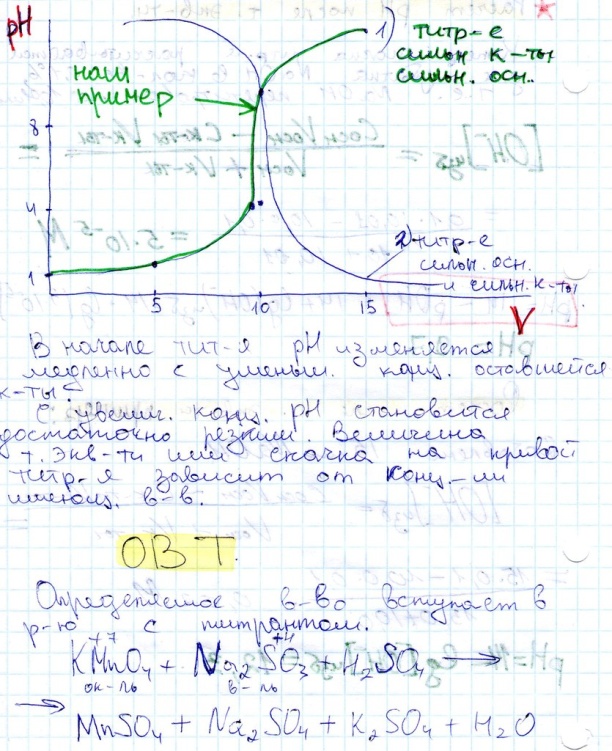 pH
1) титр-е
сильн к-ты
сильн. осн..
наш
пример
8
4
1
5
10
15
V
2) титр-е
сильн. осн.
и сильн. к-ты
В начале тит-я pH изменяется
медленно с уменьш. конц. оставшейся
к-ты.
С увелич. конц. pH становится
достаточно резким. Величина
т. экв-ти или скачка на кривой
титр-я зависит от конц-ии
в-в.
ОВТ
Определяемое в-во вступает в
р-ю с титрантом.
+7 +4
KMnO4 + Na2SO3 + H2SO4 →
ок-ль в-ль
→ MnSO4 + Na2SO4 + K2SO4 + H2O